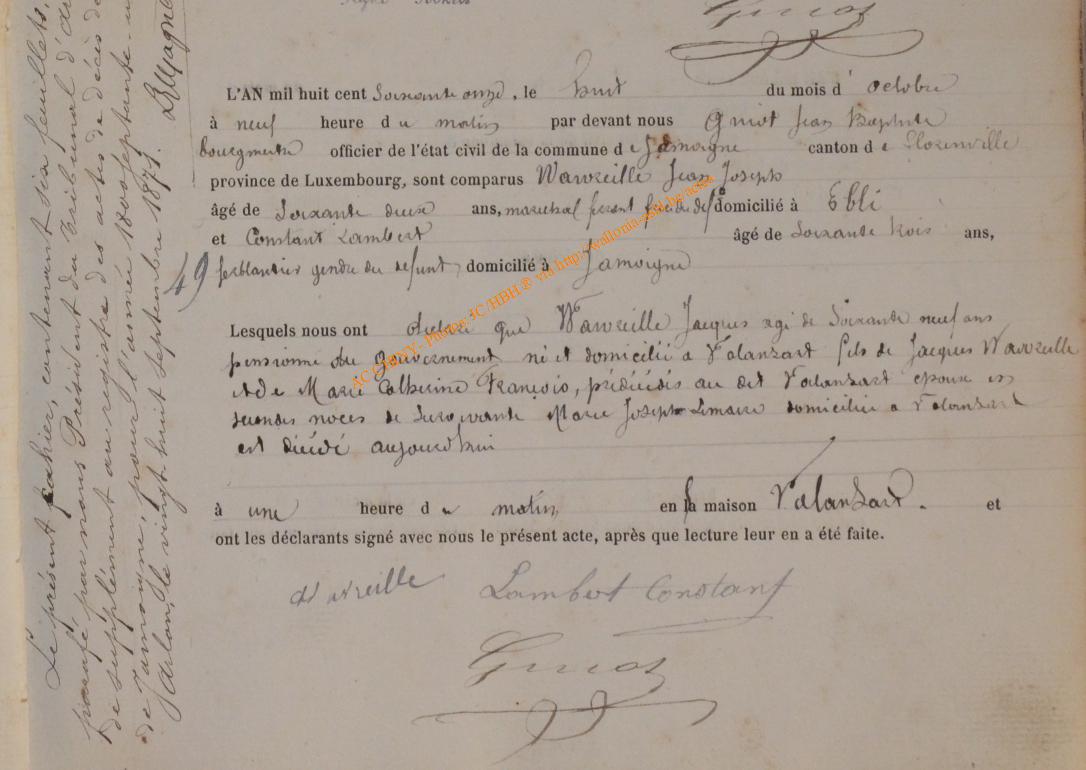 Guiot
L'AN mil huit cent Soixante onze, le huit du mois d' octobre
à neuf heure du matin par devant nous Guiot Jean Baptiste
bourgmestre officier de l'état civil de la commune de Jamoigne canton de Florenville
province de Luxembourg, sont comparus Wavreille Jean Joseph
âgé de Soixante deux ans, marechal ferrant frère du def domicilié à Ebli
et Constant Lambert âgé de Soixante trois ans,
ferblantier gendre du defunt, domicilié à Jamoigne
49
Lesquels nous ont déclaré que Wavreille Jacques agé de Soixante neuf ans
pensionné du Gouvernement né et domicilié a Valansart fils de Jacques Wavreille
et de Marie Catherine François, prédécédés au dit Valansart epoux en
secondes noces de Survivante Marie Joseph Lemaire domiciliée a Valansart
est décédé aujourd'hui
à une heure du matin en sa maison Valansart. et
ont les déclarants signé avec nous le présent acte, après que lecture leur en a été faite.
Wavreille Lambert Constant
Guiot
Le présent cahier, contenant six feuillets,
parafé par nous Président du Tribunal d'
de supplément au registre des actes de décès de
de Jamoigne, pour l'année 1800 septante-
Arlon, le vingt-huit septembre 1871.
AC CHINY- Photos JC/HBH ® via http://wallonia-asbl.be/actes